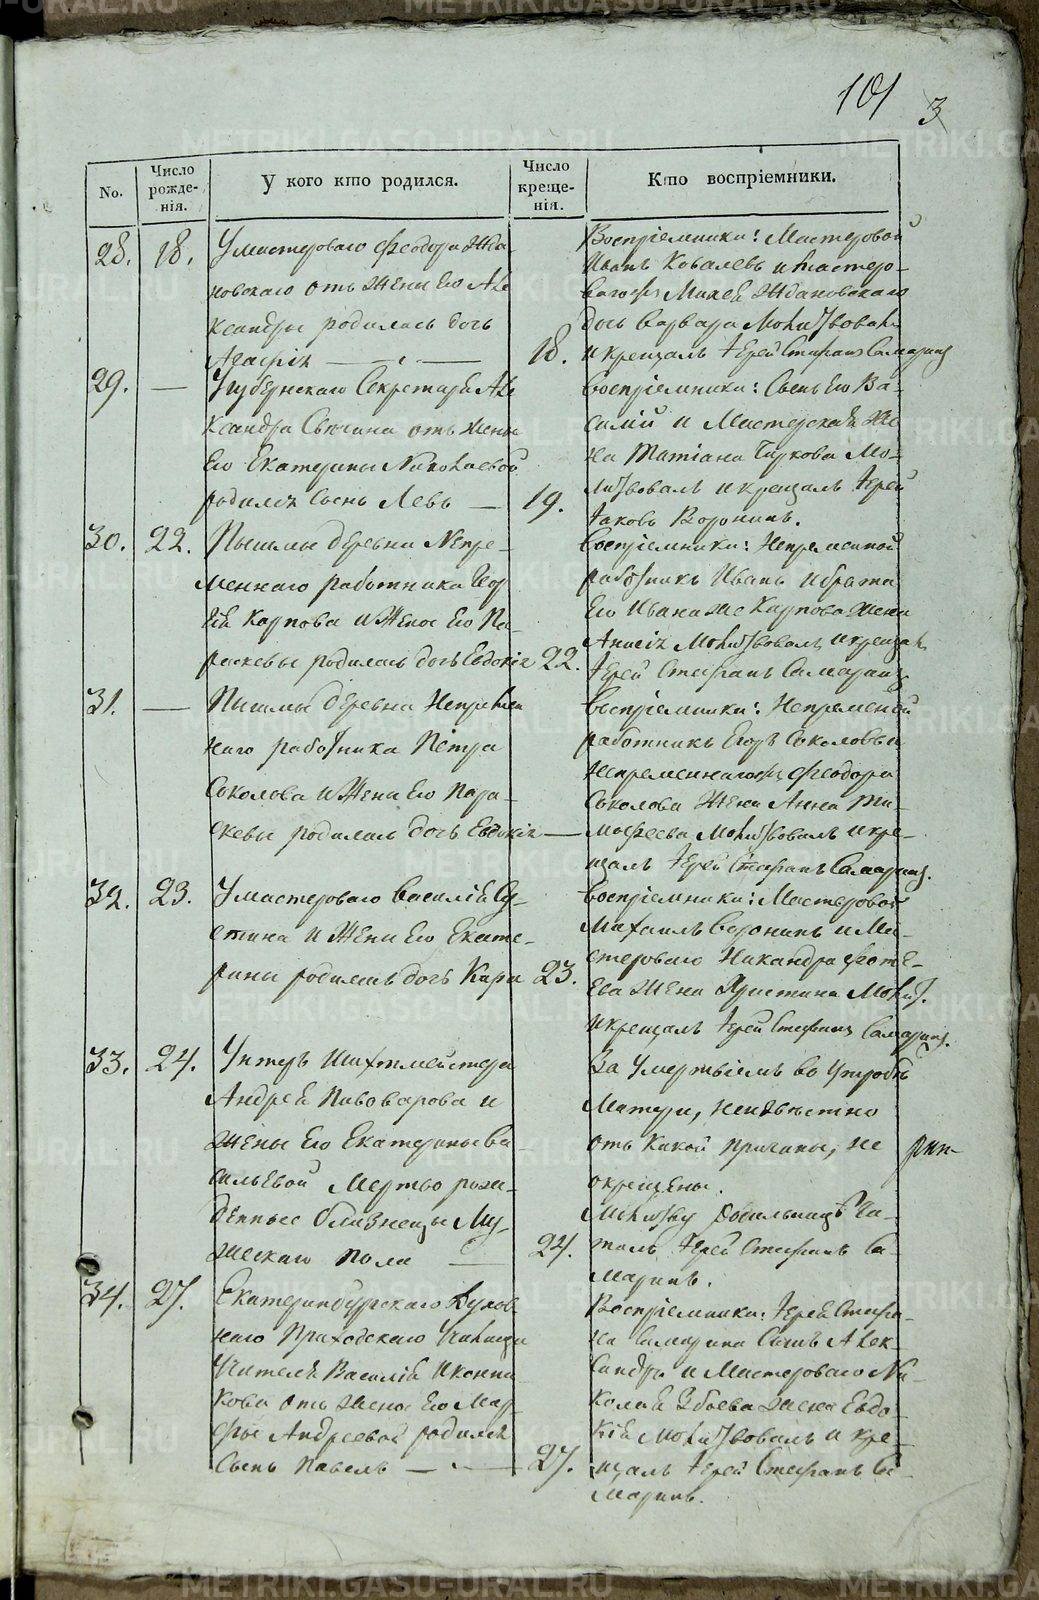 101 3
No.
Число рожде-нія.
У кого кто родился.
Число креще-нія.
Кто воспріемники.
28. 18.
У мастероваго Феодора Жда
новскаго отъ жены его Але
ксандры родилась дочь
Агафія
18.
Воспріемники: Мастеровой
Иванъ Ковалевъ и мастеро-
ваго Михея Ждановскаго
дочь Варвара Молитвовалъ
и крещалъ Іерей Стефанъ Самаринъ
29. —
Губернскаго Секретаря Але
ксандра Свечина отъ жены
его Екатерины Николаевой
родился сынъ Левъ —
19.
Воспріемники: Сынъ его Ва-
силій и Мастерская же
на Татіана Чиркова Мо-
литвовалъ и крещалъ Іерей
Іаковъ Воронинъ.
30. 22.
Пышмы деревни Непре-
меннаго работника Геор
гія Карпова и жены его Па-
раскевы родилась дочь Евдокія
22.
Воспріемники: Непременной
работникъ Иванъ и брата
его Ивана же Карпова жена
Анисія Молитвовалъ и крещалъ
Іерей Стефанъ Самаринъ
31. —
Пышмы деревни Непремен
наго работника Петра
Соколова и жены его Пара-
скевы родилась дочь Евдокія —
Воспріемники: Непременной
работникъ Егоръ Соколовъ и
непременнаго Феодора
Соколова жена Анна Ти-
мофеева Молитвовалъ и кре-
щалъ Іерей Стефанъ Самаринъ.
32. 23.
У мастероваго Василія Су-
стина и жены его Екате-
рины родилась дочь Кира
23.
Воспріемники: Мастеровой
Михаилъ Воронинъ и Ма-
стероваго Никандра Фоте-
ева жена Христина Молит.
и крещалъ Іерей Стефанъ Самаринъ.
33. 24.
Унтеръ Шихтмейстера
Андрея Пивоварова и
жены его Екатерины Ва
сильевой мертво рож-
денные близнецы му-
жескаго пола —
24.
За умертвіемъ во утробѣ
матери, неизвѣстно
отъ какой причины, не
окрещены.
Молитву родильницѣ чи-
талъ Іерей Стефанъ Са-
маринъ.
34. 27.
Екатеринбургскаго Духов
наго Приходскаго Училища
Учителя Василія Иконни
кова отъ жены его Мар-
фы Андреевой родился
Сынъ Павелъ —
27.
Воспріемники: Іерея Стефа-
на Самарина Сынъ Алек-
сандръ и Мастероваго Ни-
колая Збоева жена Евдо-
кія Молитвовалъ и кре-
щалъ Іерей Стефанъ Са-
маринъ.
METRIKI.GASO-URAL.RU